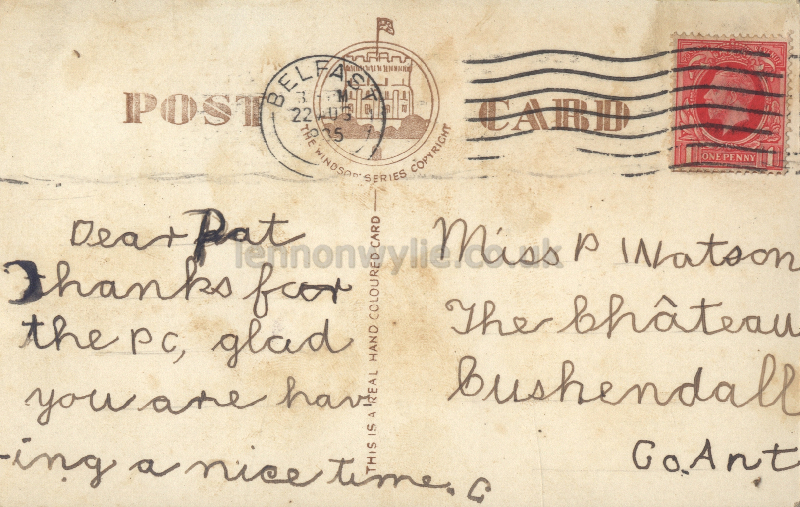 POST CARD
BELFAST
22 AUG
THE WINDSOR SERIES COPYRIGHT
ONE PENNY
THIS IS A REAL HAND COLOURED CARD
lennonwylie.co.uk
Dear Pat
Thanks for
the PC, glad
you are hav
-ing a nice time. C
Miss P Watson
The Château
Cushendall
Co. Ant